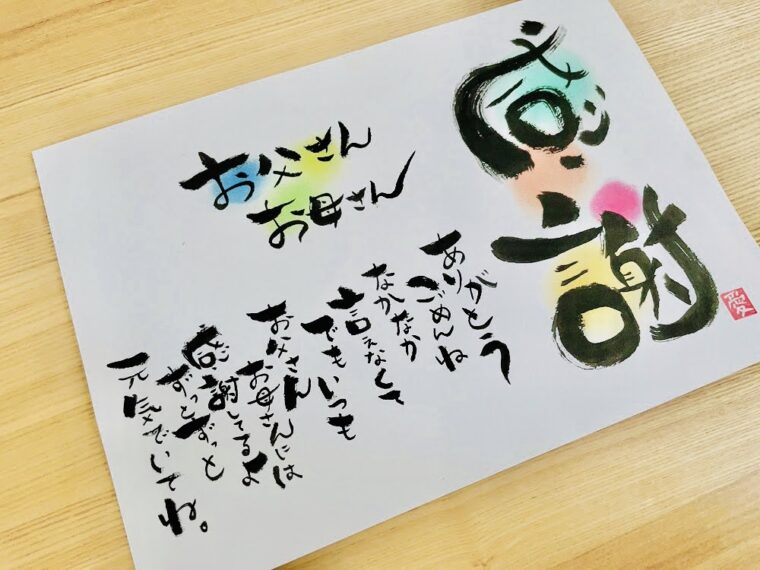 感謝
お父さん
お母さん
ありがとう
ごめんね
なかなか
言えなくて
でもいつも
お父さん
お母さんには
感謝してるよ
ずっとずっと
元気でいてね。
愛